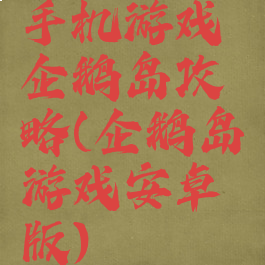 手机游戏
企鹅岛攻
略(企鹅岛
游戏安卓
版)